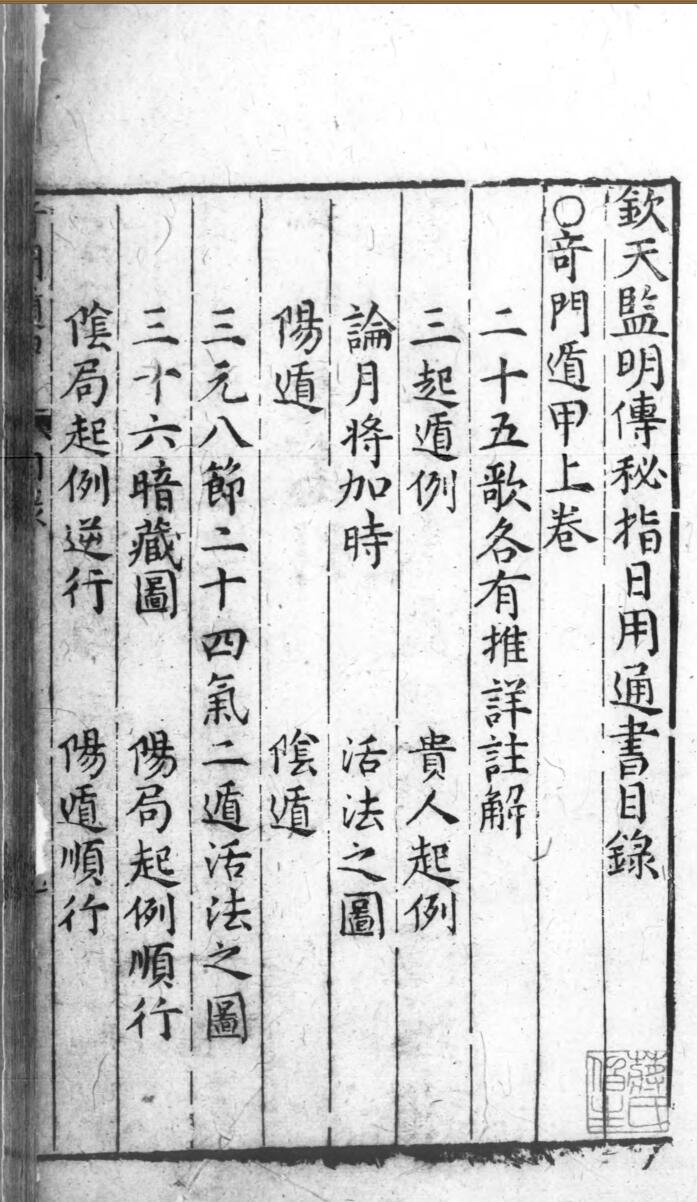 欽天監明傳秘指日用通書目錄
○奇門遁甲上卷
二十五歌各有推詳註解
三起遁例 貴人起例
論月將加時 活法之圖
陽遁 陰遁
三元八節二十四氣二遁活法之圖
三十六暗藏圖 陽局起例順行
陰局起例逆行 陽遁順行